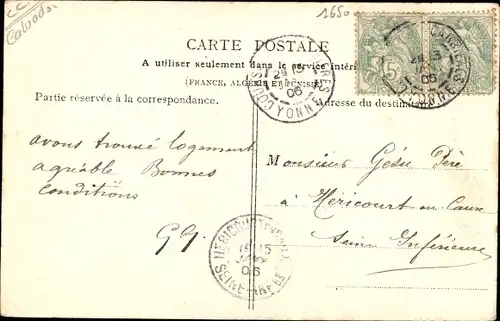 Calvados
1650
CARTE POSTALE
A utiliser seulement dans le service intéri
(FRANCE, ALGÉRIE ET TUNISIE)
Partie réservée à la correspondance.
Adresse du destinata
avons trouvé logement
agréable Bonnes
conditions
G G.
Monsieur Gésu Père
à Héricourt en Caux
Seine Inférieure
YONNE
06
5
YONNE
06
HERICOURT-EN-CAUX
15
06
SEINE-INFRE